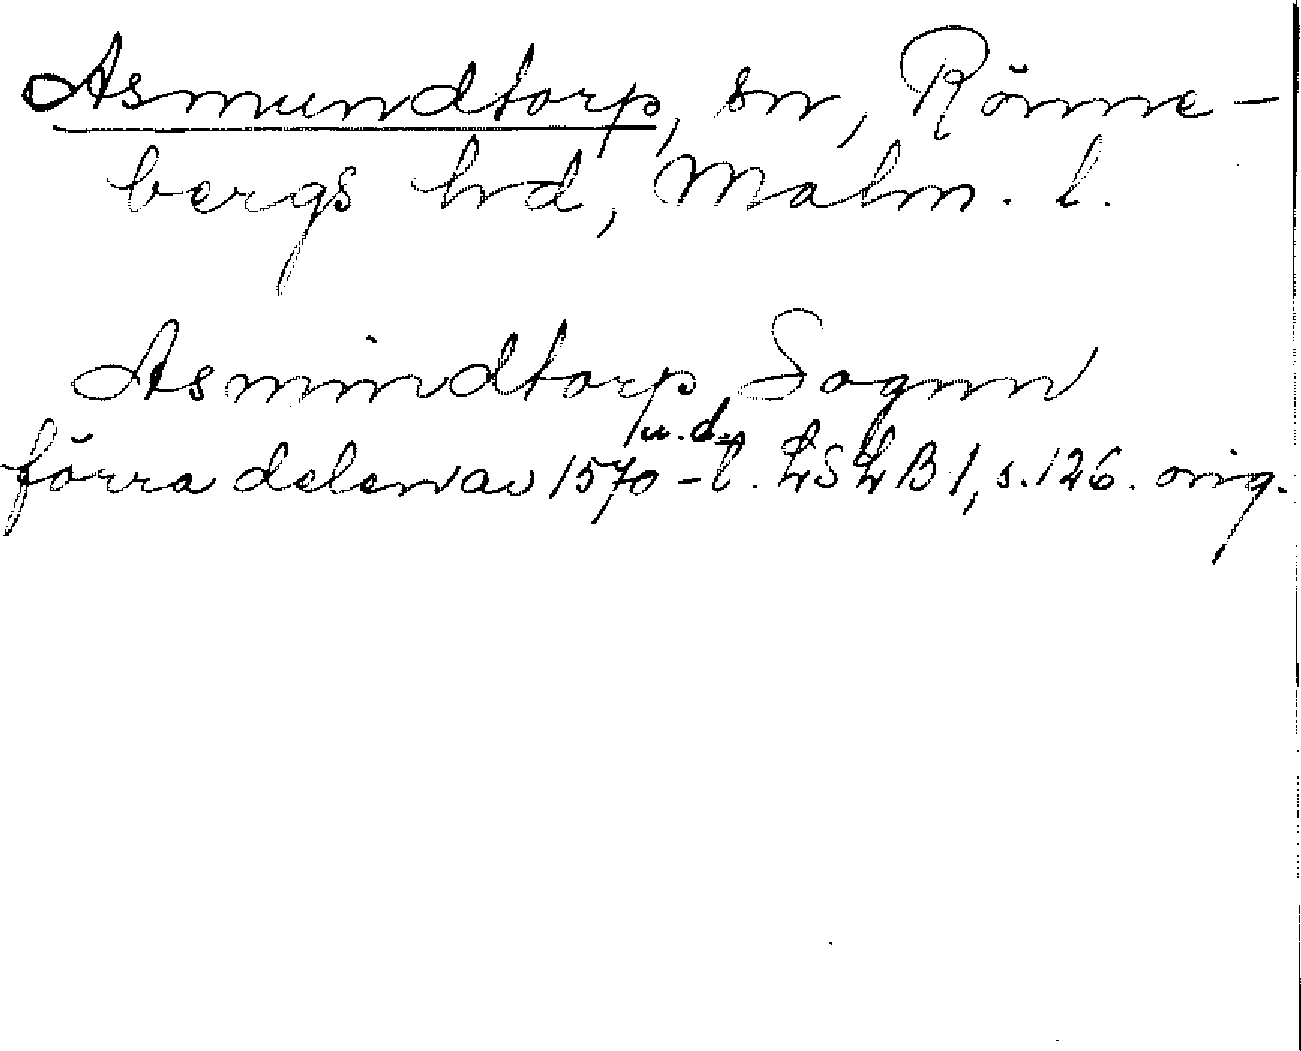 Asmundtorp, sn, Rönne-
bergs hd, Malm. l.
Asmindtorp Sognn
u.d.
förra delen av 1570-t. LSLB 1, s. 126. orig.